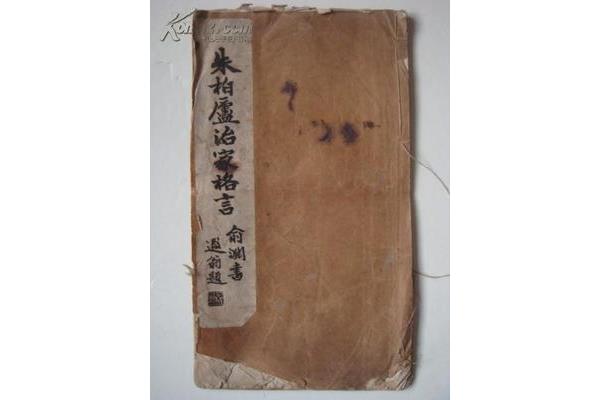 朱柏廬治家格言
俞淵書
遐翁題